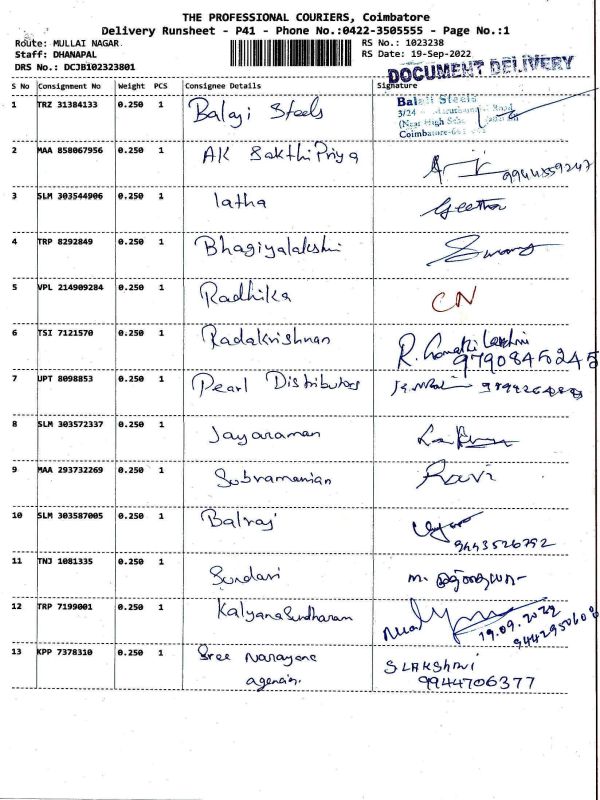 THE PROFESSIONAL COURIERS, Coimbatore
Delivery Runsheet - P41 - Phone No.:0422-3505555 - Page No.:1
Route: MULLAI NAGAR RS No.: 1023238
Staff: DHANAPAL RS Date: 19-Sep-2022
DRS No.: DCJB102323801
DOCUMENT DELIVERY
S No Consignment No Weight PCS Consignee Details Signature
1 TRZ 31384133 0.250 1 Balaji Steels
Balaji Steels
3/24 Road
(Near High
Coimbatore-641
2 MAA 858067956 0.250 1 AK SakthiPriya 9944559247
3 SLM 303544906 0.250 1 latha Geetha
4 TRP 8292849 0.250 1 Bhagiyalakshmi
5 VPL 214909284 0.250 1 Radhika CN
6 TSI 7121570 0.250 1 Radakrishnan R. Gomathi Lakshmi
9790845245
7 UPT 8098853 0.250 1 Pearl Distributor
8 SLM 303572337 0.250 1 Jayaraman
9 MAA 293732269 0.250 1 Subramanian Ravi
10 SLM 303587005 0.250 1 Balraj
9443526792
11 TNJ 1081335 0.250 1 Sundari M.
12 TRP 7199001 0.250 1 KalyanaSundharam
19.09.2022
9442950608
13 KPP 7378310 0.250 1 Sree Narayana
agencies. S LAKSHMI
9944706377